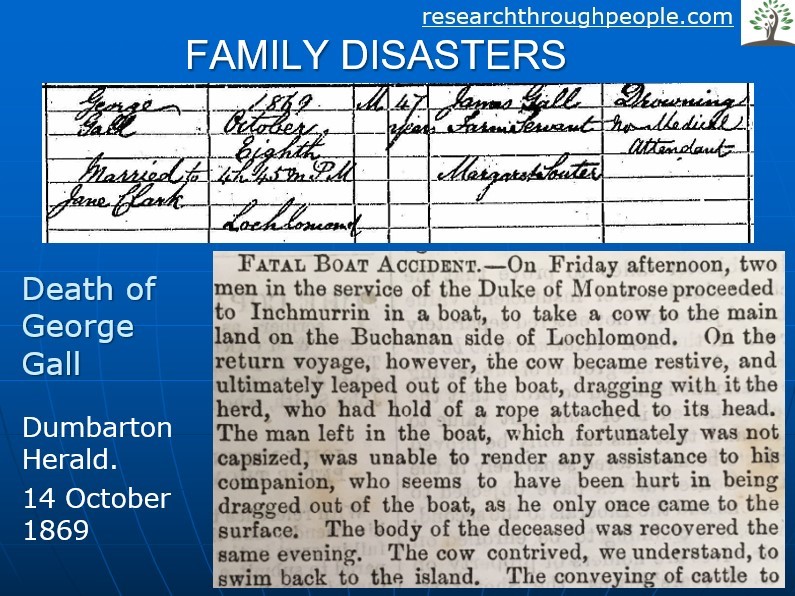 researchthroughpeople.com
FAMILY DISASTERS
George 1869 M 47 James Gall Drowning
Gall October years Farm Servant No Medical
Eighth Attendant
Married to 4h 45m PM Margaret Souter
Jane Clark
Lochlomond
Death of
George
Gall
Dumbarton
Herald.
14 October
1869
FATAL BOAT ACCIDENT.—On Friday afternoon, two
men in the service of the Duke of Montrose proceeded
to Inchmurrin in a boat, to take a cow to the main
land on the Buchanan side of Lochlomond. On the
return voyage, however, the cow became restive, and
ultimately leaped out of the boat, dragging with it the
herd, who had hold of a rope attached to its head.
The man left in the boat, which fortunately was not
capsized, was unable to render any assistance to his
companion, who seems to have been hurt in being
dragged out of the boat, as he only once came to the
surface. The body of the deceased was recovered the
same evening. The cow contrived, we understand, to
swim back to the island. The conveying of cattle to